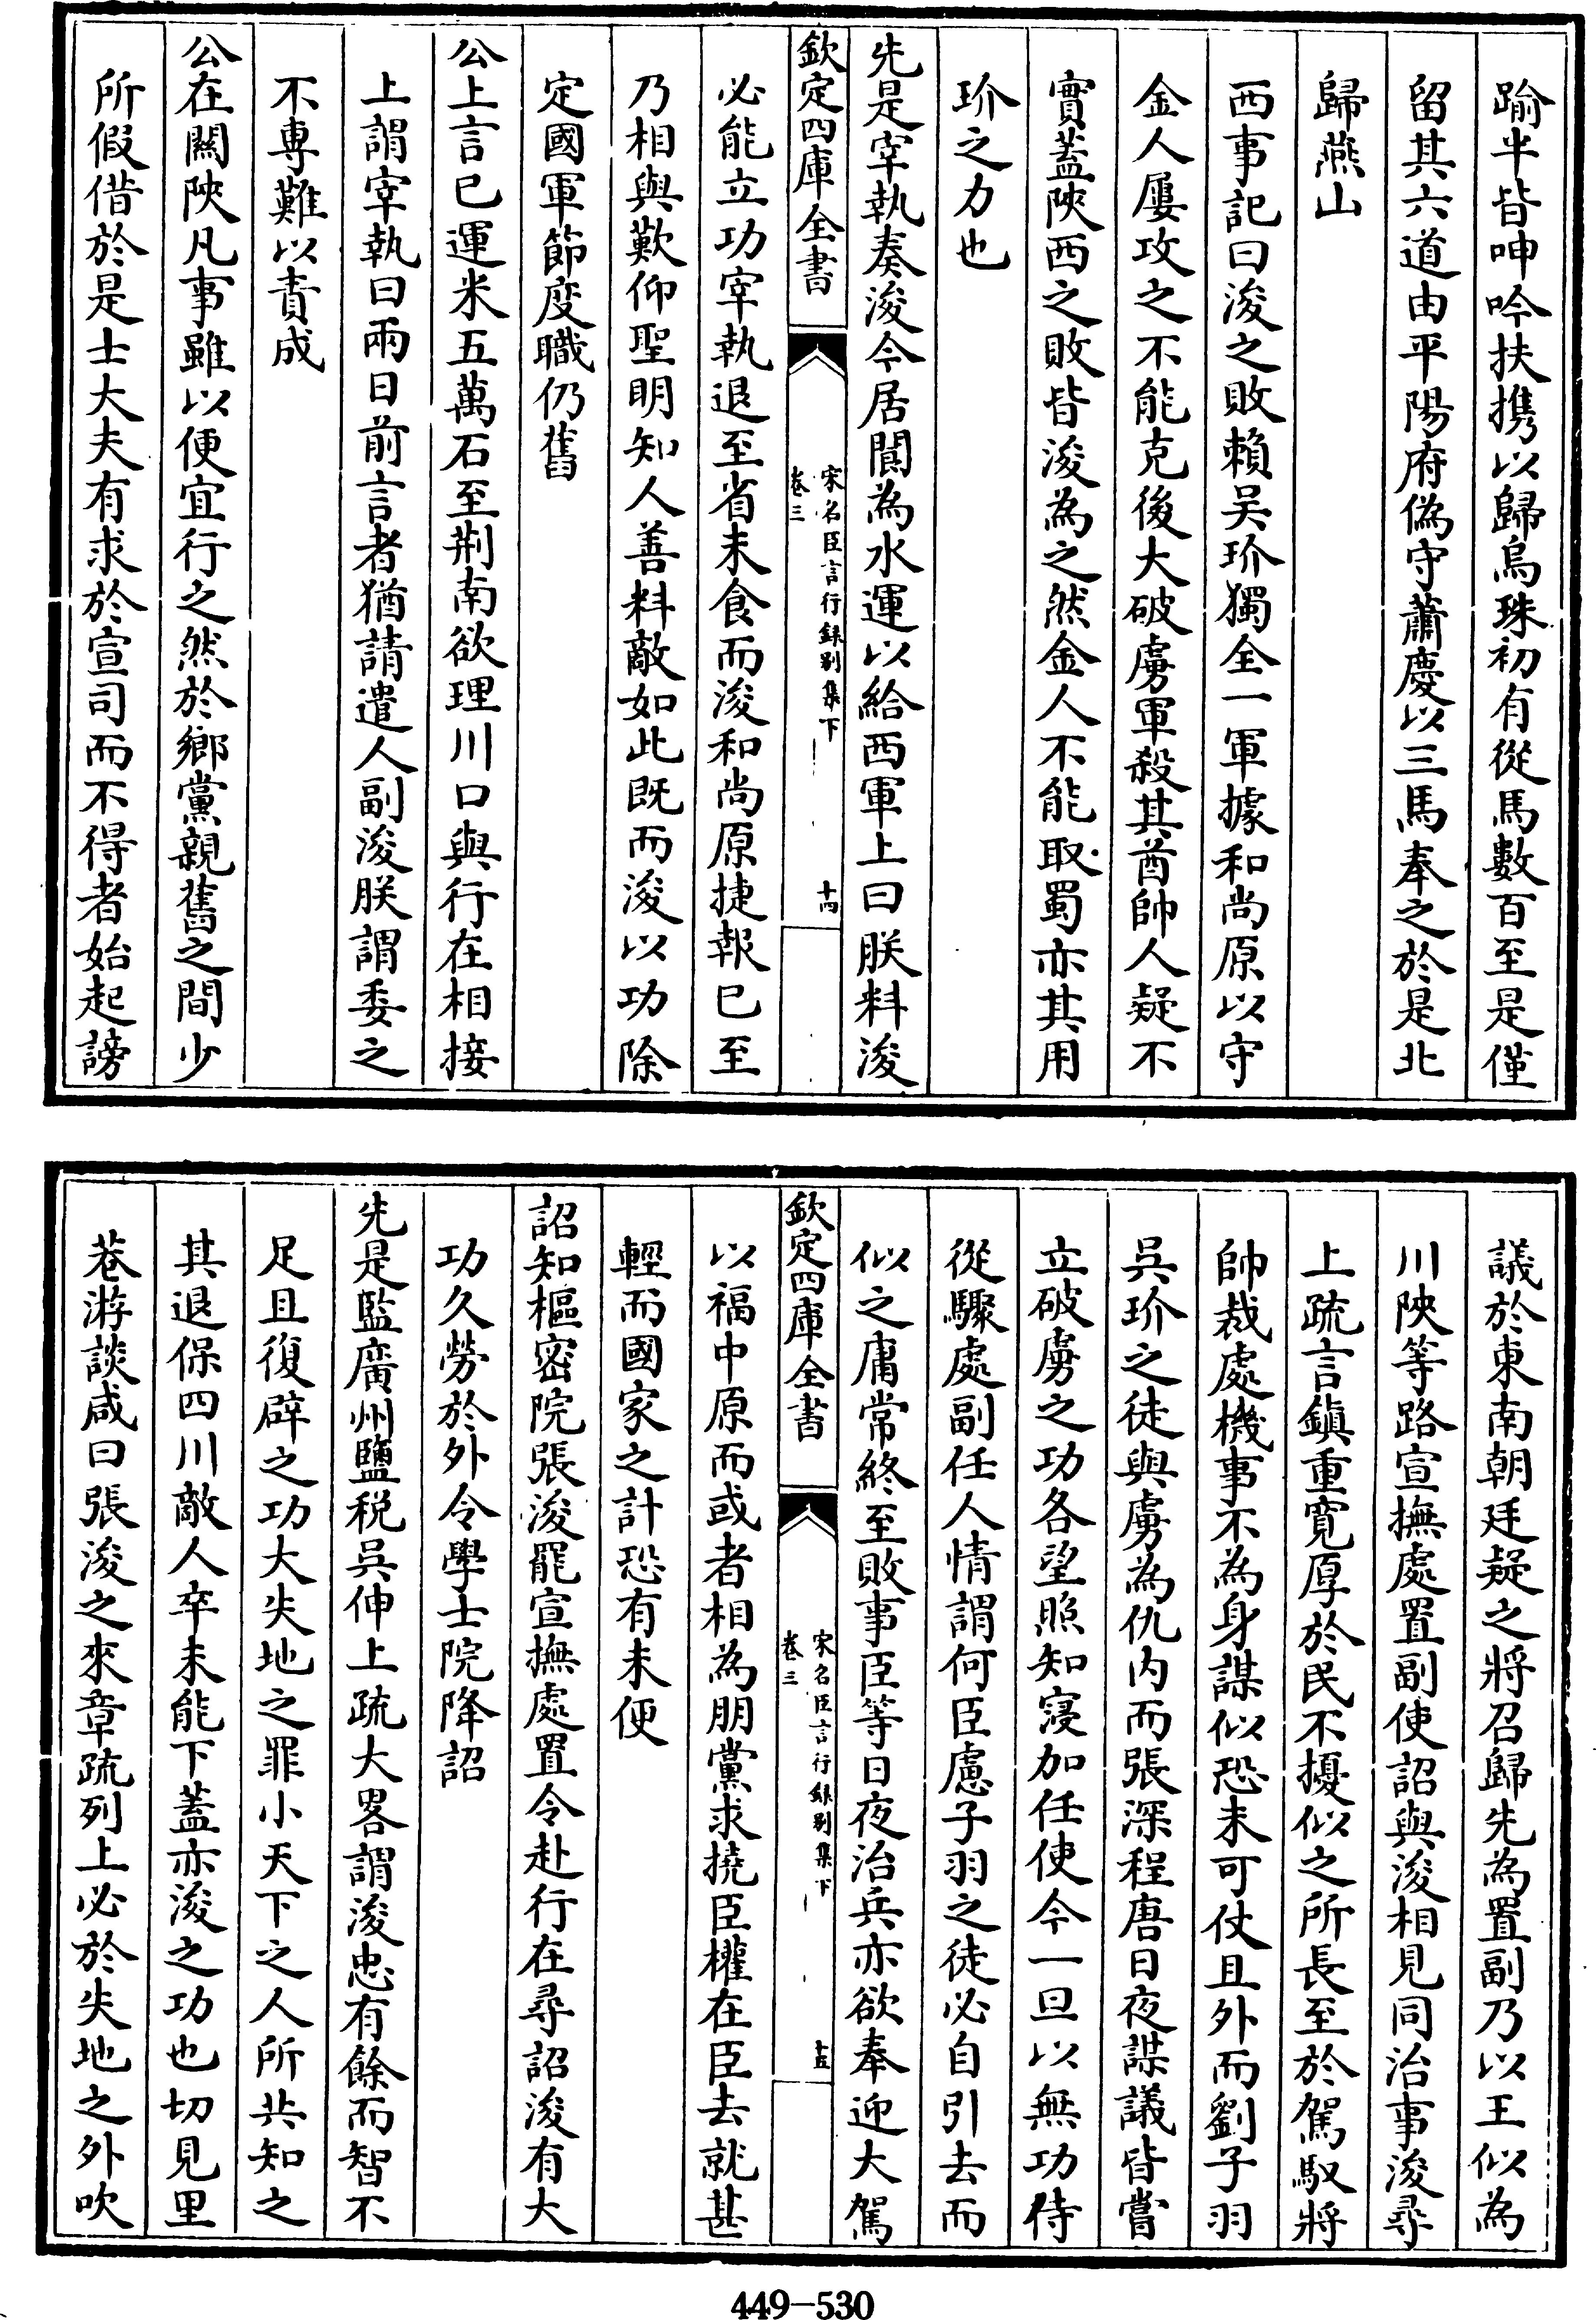 踰半皆呻吟扶攜以歸烏珠初有從馬數百至是僅
留其六道由平陽府偽守蕭慶以三馬奉之於是北
歸燕山
西事記曰浚之敗賴吴玠獨全一軍據和尚原以守
金人屢攻之不能克後大破虜軍殺其酋帥人疑不
實蓋陜西之敗皆浚為之然金人不能取蜀亦其用
玠之力也
先是宰執奏浚今居閬為水運以給西軍上曰朕料浚
欽定四庫全書
宋名臣言行錄別集下
卷三
十四
必能立功宰執退至省未食而浚和尚原捷報已至
乃相與歎仰聖明知人善料敵如此既而浚以功除
定國軍節度職仍舊
公上言已運米五萬石至荆南欲理川口與行在相接
上謂宰執曰兩日前言者猶請遣人副浚朕謂委之
不專難以責成
公在關陜凡事雖以便宜行之然於鄉黨親舊之間少
所假借於是士大夫有求於宣司而不得者始起謗
議於東南朝廷疑之將召歸先為置副乃以王似為
川陜等路宣撫處置副使詔與浚相見同治事浚尋
上疏言鎮重寛厚於民不擾似之所長至於駕馭將
帥裁處機事不為身謀似恐未可仗且外而劉子羽
吳玠之徒與虜為仇内而張深程唐日夜謀議皆嘗
立破虜之功各望照知寖加任使今一旦以無功侍
從驟處副任人情謂何臣慮子羽之徒必自引去而
似之庸常終至敗事臣等日夜治兵亦欲奉迎大駕
欽定四庫全書
宋名臣言行錄別集下
卷三
十五
以福中原而或者相為朋黨求撓臣權在臣去就甚
輕而國家之計恐有未便
詔知樞密院張浚罷宣撫處置令赴行在尋詔浚有大
功久勞於外令學士院降詔
先是監廣州鹽税吳伸上疏大畧謂浚忠有餘而智不
足且復辟之功大失地之罪小天下之人所共知之
其退保四川敵人卒未能下蓋亦浚之功也切見里
巷游談咸曰張浚之來章疏列上必於失地之外吹
449-530